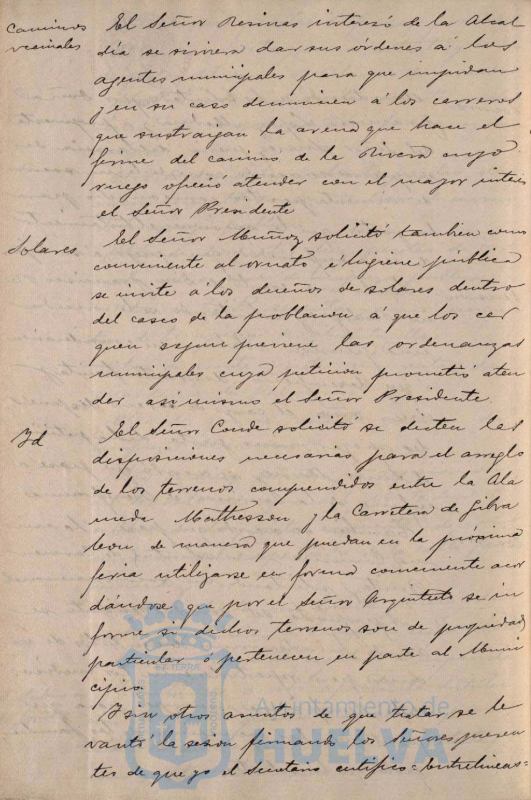 Caminos
vecinales
El Señor Resinas interesó de la Alcal
día se sirviera dar sus órdenes á los
agentes municipales para que impidan
y en su caso denuncien á los carreros
que sustráigan la arena que hace el
firme del camino de la Rivera cuyo
ruego ofreció atender con el mayor interes
el Señor Presidente
Solares
El Señor Muñoz solicitó tambien como
conveniente al ornato é higiene pública
se invite á los dueños de solares dentro
del casco de la poblacion á que los cer
quen segun previene las ordenanzas
municipales cuya peticion prometió aten
der asi mismo el Señor Presidente.
Id
El Señor Conde solicitó se dicten las
disposiciones necesarias para el arreglo
de los terrenos comprendidos entre la Ala
meda Mathesson y la Carretera de Gibra
leon de manera que puedan en la próxima
feria utilizarse en forma conveniente acor
dándose que por el Señor Arquitecto se in
forme si dichos terrenos son de propiedad
particular ó pertenecen en parte al Muni
cipio.
Y sin otros asuntos de que tratar se le
vantó la sesion firmando los Señores presen
tes de que yo el Secretario certifico = Entrelineas =
Ayuntamiento de
HUELVA